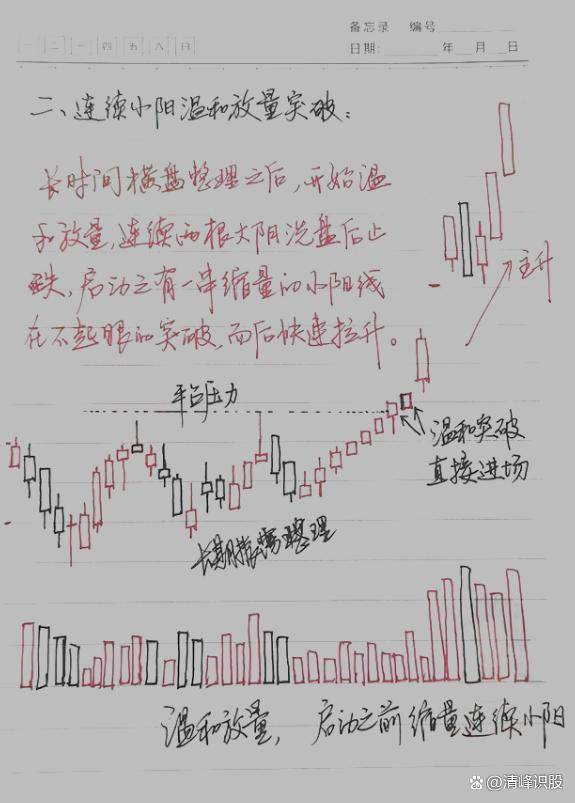 备忘录 编号
一 二 三 四 五 六 日
日期: 年 月 日
二、连续小阳温和放量突破:
长时间横盘整理之后,开始温
和放量,连续两根大阳洗盘后止
跌,启动之有一串缩量的小阳线
在不起眼的突破,而后快速拉升。
主升
平台压力
温和突破
直接进场
长期横盘整理
温和放量, 启动之前缩量连续小阳
清峰识股